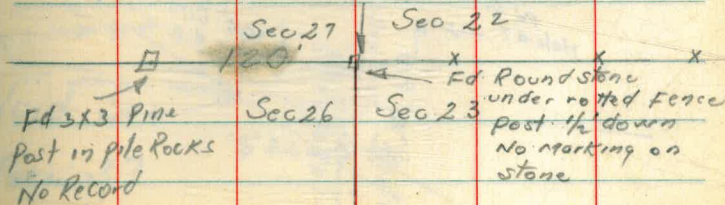 Sec 27 Sec 22
120'
Fd 3x3 Pine
Post in pile Rocks
No Record
Sec 26 Sec 23
Fd Round stone
under rotted Fence
post 1/2' down
No marking on
stone